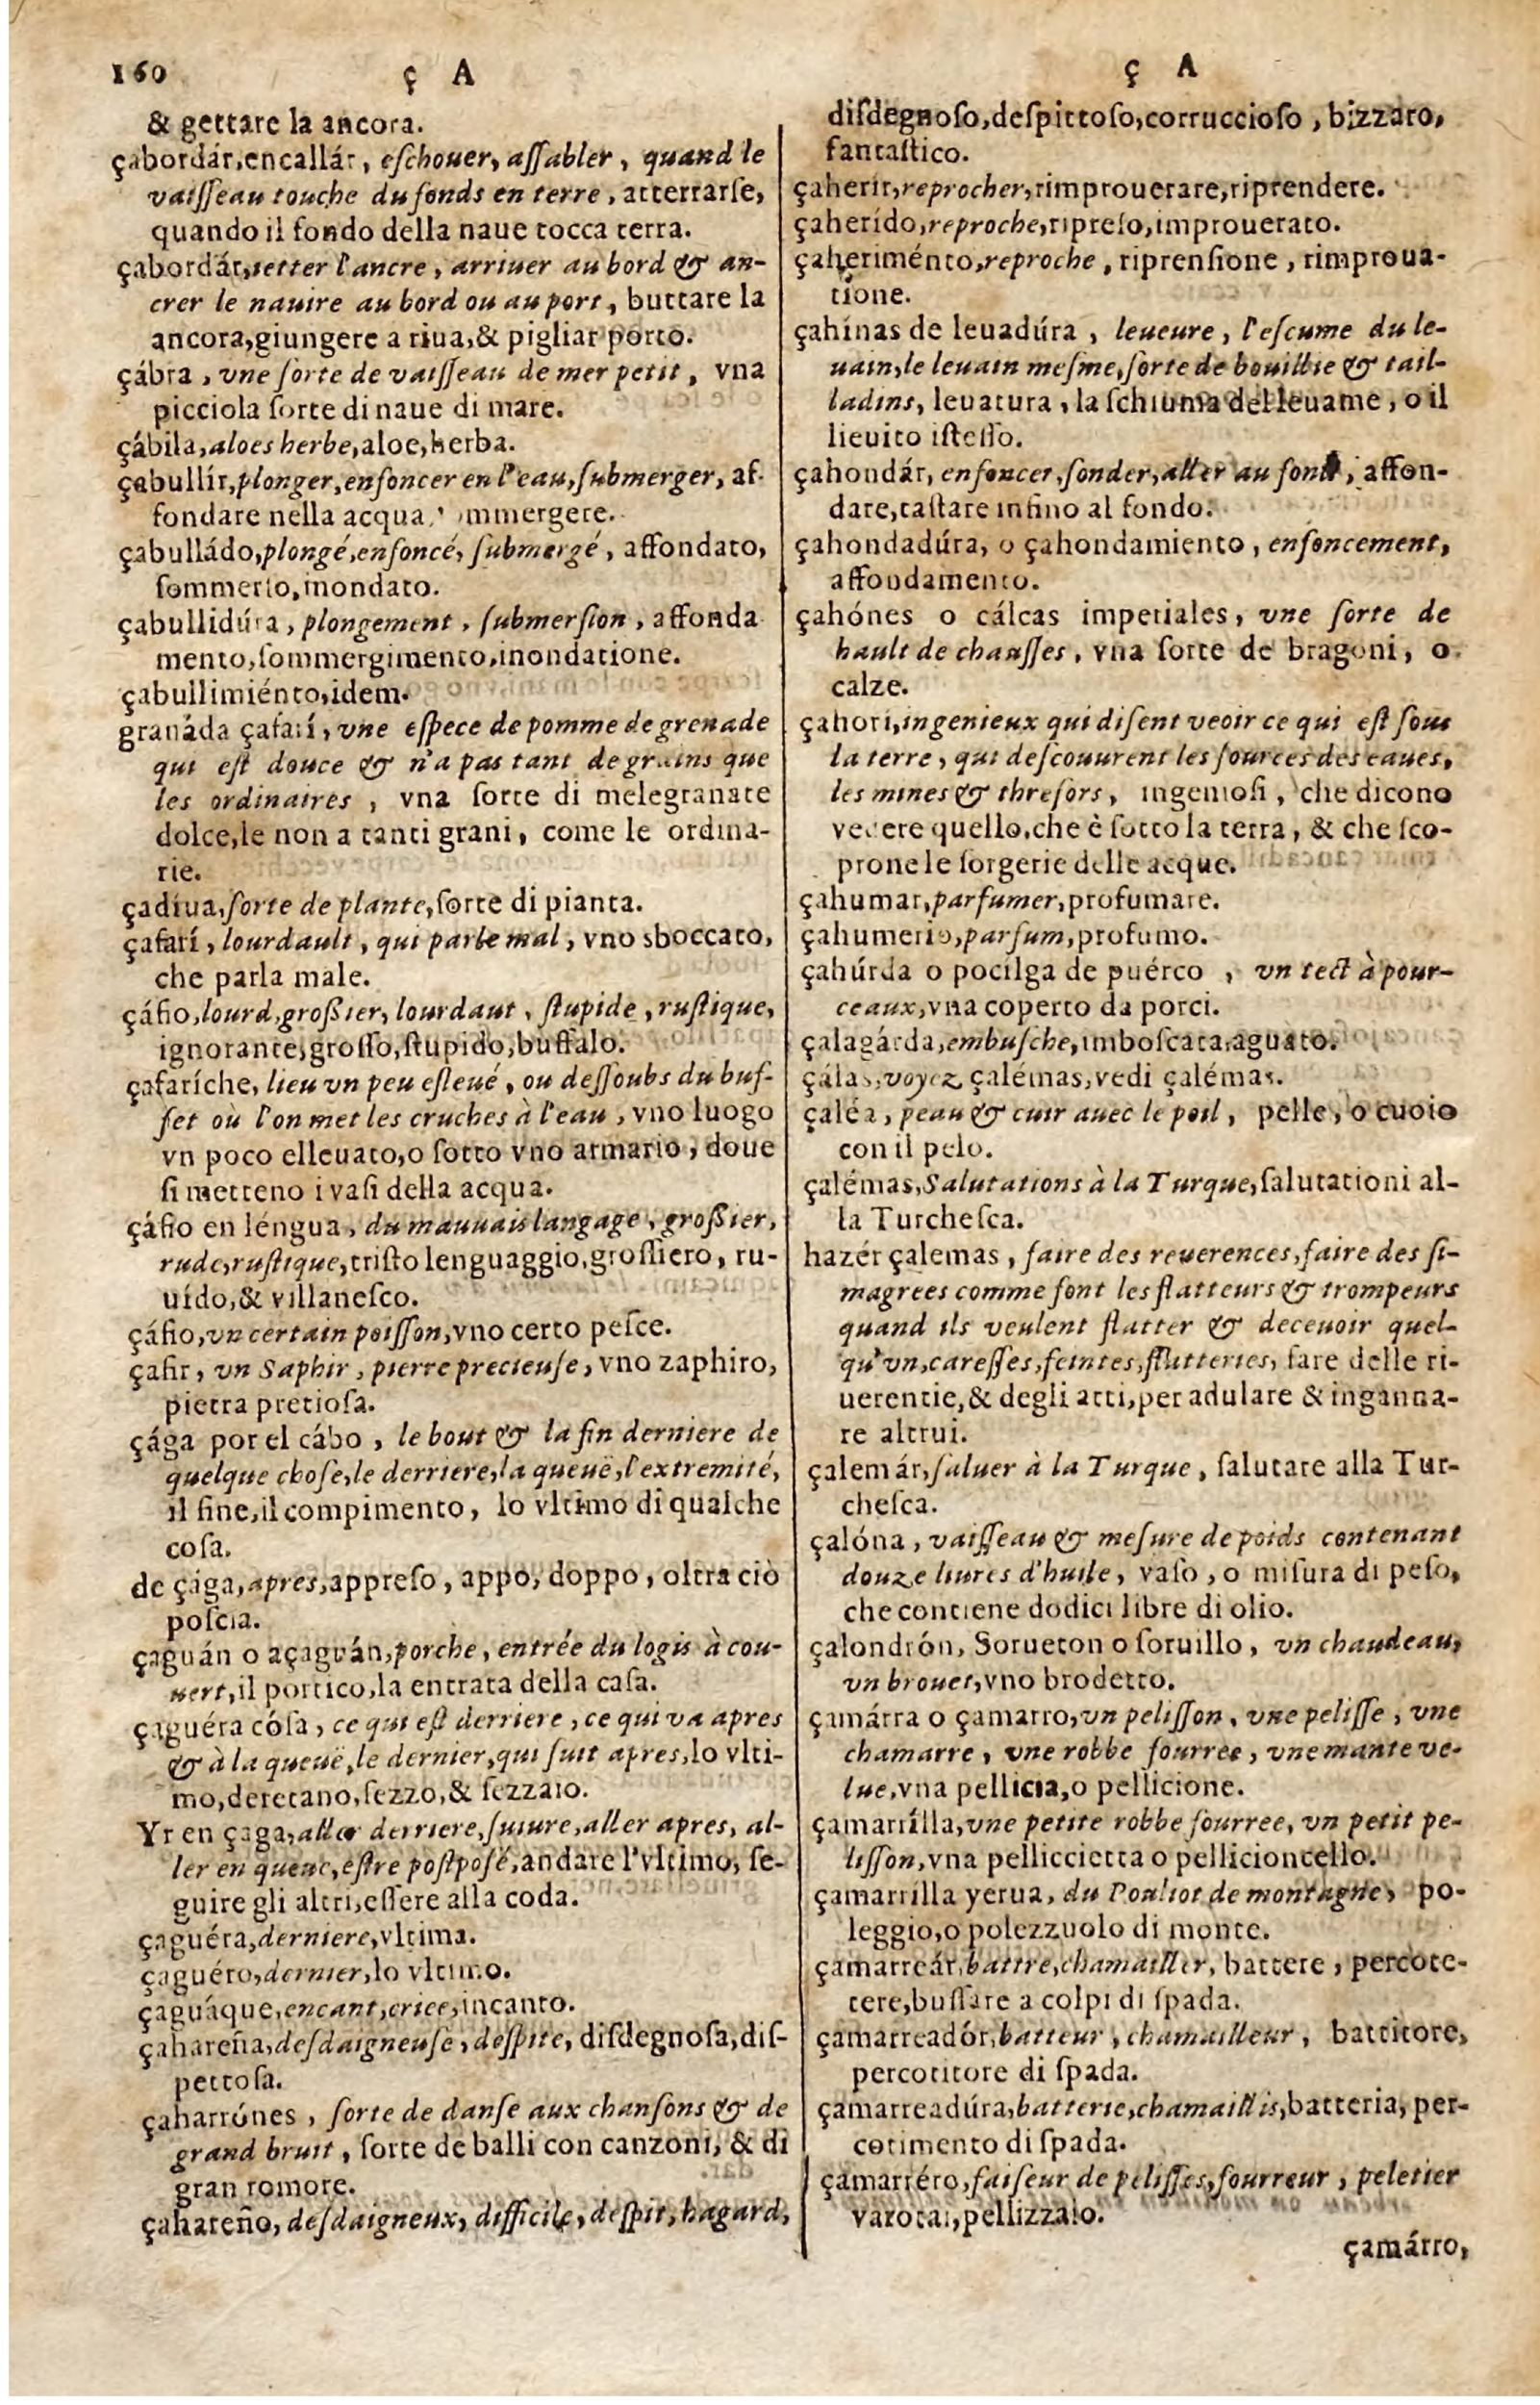 160 ç A
& gettare la ancora.
çabordár,encallár, eſchouer, aſſabler, quand le
vaiſſeau touche du fonds en terre, atterrarſe,
quando il fondo della naue tocca terra.
çabordár,ietter l'ancre, arriuer au bord & an-
crer le nauire au bord ou au port, buttare la
ancora,giungere a riua,& pigliar porto.
çábra, vne ſorte de vaiſſeau de mer petit, vna
picciola ſorte di naue di mare.
çábila,aloes herbe,aloe,herba.
çabullír,plonger,enfoncer en l'eau,ſubmerger, af-
fondare nella acqua, ommergere.
çabulládo,plongé,enfoncé, ſubmergé, affondato,
ſommerſo,inondato.
çabullidúra, plongement, ſubmerſion, affonda
mento,ſommergimento,inondatione.
çabullimiénto,idem.
granáda çafarí, vne eſpece de pomme de grenade
qui eſt douce & n'a pas tant de grains que
les ordinaires, vna ſorte di melegranate
dolce,le non a tanti grani, come le ordina-
rie.
çadíua,ſorte de plante,ſorte di pianta.
çafarí, lourdault, qui parle mal, vno sboccato,
che parla male.
çáfio,lourd,groſsier, lourdaut, ſtupide, ruſtique,
ignorante,groſſo,ſtupido,buffalo.
çafaríche, lieu vn peu eſleué, ou deſſoubs du buf-
fet où l'on met les cruches à l'eau, vno luogo
vn poco elleuato,o ſotto vno armario, doue
ſi metteno i vaſi della acqua.
çáfio en léngua, du mauuais langage, groſsier,
rude,ruſtique,triſto lenguaggio,groſſiero, ru-
uído,& villaneſco.
çáfio,vn certain poiſſon,vno certo peſce.
çafir, vn Saphir, pierre precieuſe, vno zaphiro,
pietra pretioſa.
çága por el cábo, le bout & la fin derniere de
quelque choſe,le derriere,la queuë,l'extremité,
il fine,il compimento, lo vltimo di qualche
coſa.
de çága,apres,appreſo, appo, doppo, oltra ciò
poſcia.
çaguán o açaguán,porche, entrée du logis à cou-
uert,il portico,la entrata della caſa.
çaguéra cóſa, ce qui eſt derriere, ce qui va apres
& à la queuë,le dernier,qui ſuit apres,lo vlti-
mo,deretano,ſezzo,& ſezzaio.
Yr en çaga,aller derriere,ſuiure,aller apres, al-
ler en queue,eſtre poſtpoſé,andare l'vltimo, ſe-
guire gli altri,eſſere alla coda.
çaguéra,derniere,vltima.
çaguéro,dernier,lo vltimo.
çaguáque,encant,criee,incanto.
çahareña,deſdaigneuſe, deſpite, diſdegnoſa,diſ-
pettoſa.
çaharrónes, ſorte de danſe aux chanſons & de
grand bruit, ſorte de balli con canzoni, & di
gran romore.
çahareño, deſdaigneux, difficile, deſpit, hagard,
ç A
diſdegnoſo,deſpittoſo,corruccioſo, bizzaro,
fantaſtico.
çaherir,reprocher,rimprouerare,riprendere.
çaherído,reproche,ripreſo,improuerato.
çaheriménto,reproche, riprenſione, rimproua-
tione.
çahínas de leuadúra, leueure, l'eſcume du le-
uain,le leuain meſme,ſorte de bouillie & tail-
ladins, leuatura, la ſchiuma del leuame, o il
lieuito iſteſſo.
çahondár, enfoncer,ſonder,aller au fond, affon-
dare,taſtare infino al fondo.
çahondadúra, o çahondamiento, enfoncement,
affoudamento.
çahónes o cálcas imperiales, vne ſorte de
hault de chauſſes, vna ſorte de bragoni, o
calze.
çahorí,ingenieux qui diſent veoir ce qui eſt ſous
la terre, qui deſcouurent les ſources des eaues,
les mines & threſors, ingenioſi, che dicono
vedere quello,che è ſotto la terra, & che ſco-
prone le ſorgerie delle acque.
çahumar,parfumer,profumare.
çahumerio,parfum,profumo.
çahúrda o pocilga de puérco, vn tect à pour-
ceaux,vna coperto da porci.
çalagárda,embuſche,imboſcata,aguato.
çálas,voyez çalémas,vedi çalémas.
çaléa, peau & cuir auec le poil, pelle, o cuoio
con il pelo.
çalémas,Salutations à la Turque,ſalutationi al-
la Turcheſca.
hazér çalemas, faire des reuerences,faire des ſi-
magrees comme font les flatteurs & trompeurs
quand ils veulent flatter & deceuoir quel-
qu'vn,careſſes,feintes,flatteries, fare delle ri-
uerentie,& degli atti,per adulare & inganna-
re altrui.
çalemár,ſaluer à la Turque, ſalutare alla Tur-
cheſca.
çalóna, vaiſſeau & meſure de poids contenant
douze liures d'huile, vaſo, o miſura di peſo,
che contiene dodici libre di olio.
çalondrón, Sorueton o ſoruillo, vn chaudeau,
vn brouet,vno brodetto.
çamárra o çamarro,vn peliſſon, vne peliſſe, vne
chamarre, vne robbe fourree, vne mante ve-
lue,vna pellicia,o pellicione.
çamarrílla,vne petite robbe fourree, vn petit pe-
liſſon,vna pelliccietta o pellicioncello.
çamarrilla yerua, du Pouliot de montagne, po-
leggio,o polezzuolo di monte.
çamarreár,battre,chamailler, battere, percote-
tere,buſſare a colpi di ſpada.
çamarreadór,batteur, chamailleur, battitore,
percotitore di ſpada.
çamarreadúra,batterie,chamaillis,batteria, per-
cotimento di ſpada.
çamarréro,faiſeur de peliſſes,fourreur, peletier
varotai,pellizzaio.
çamárro,